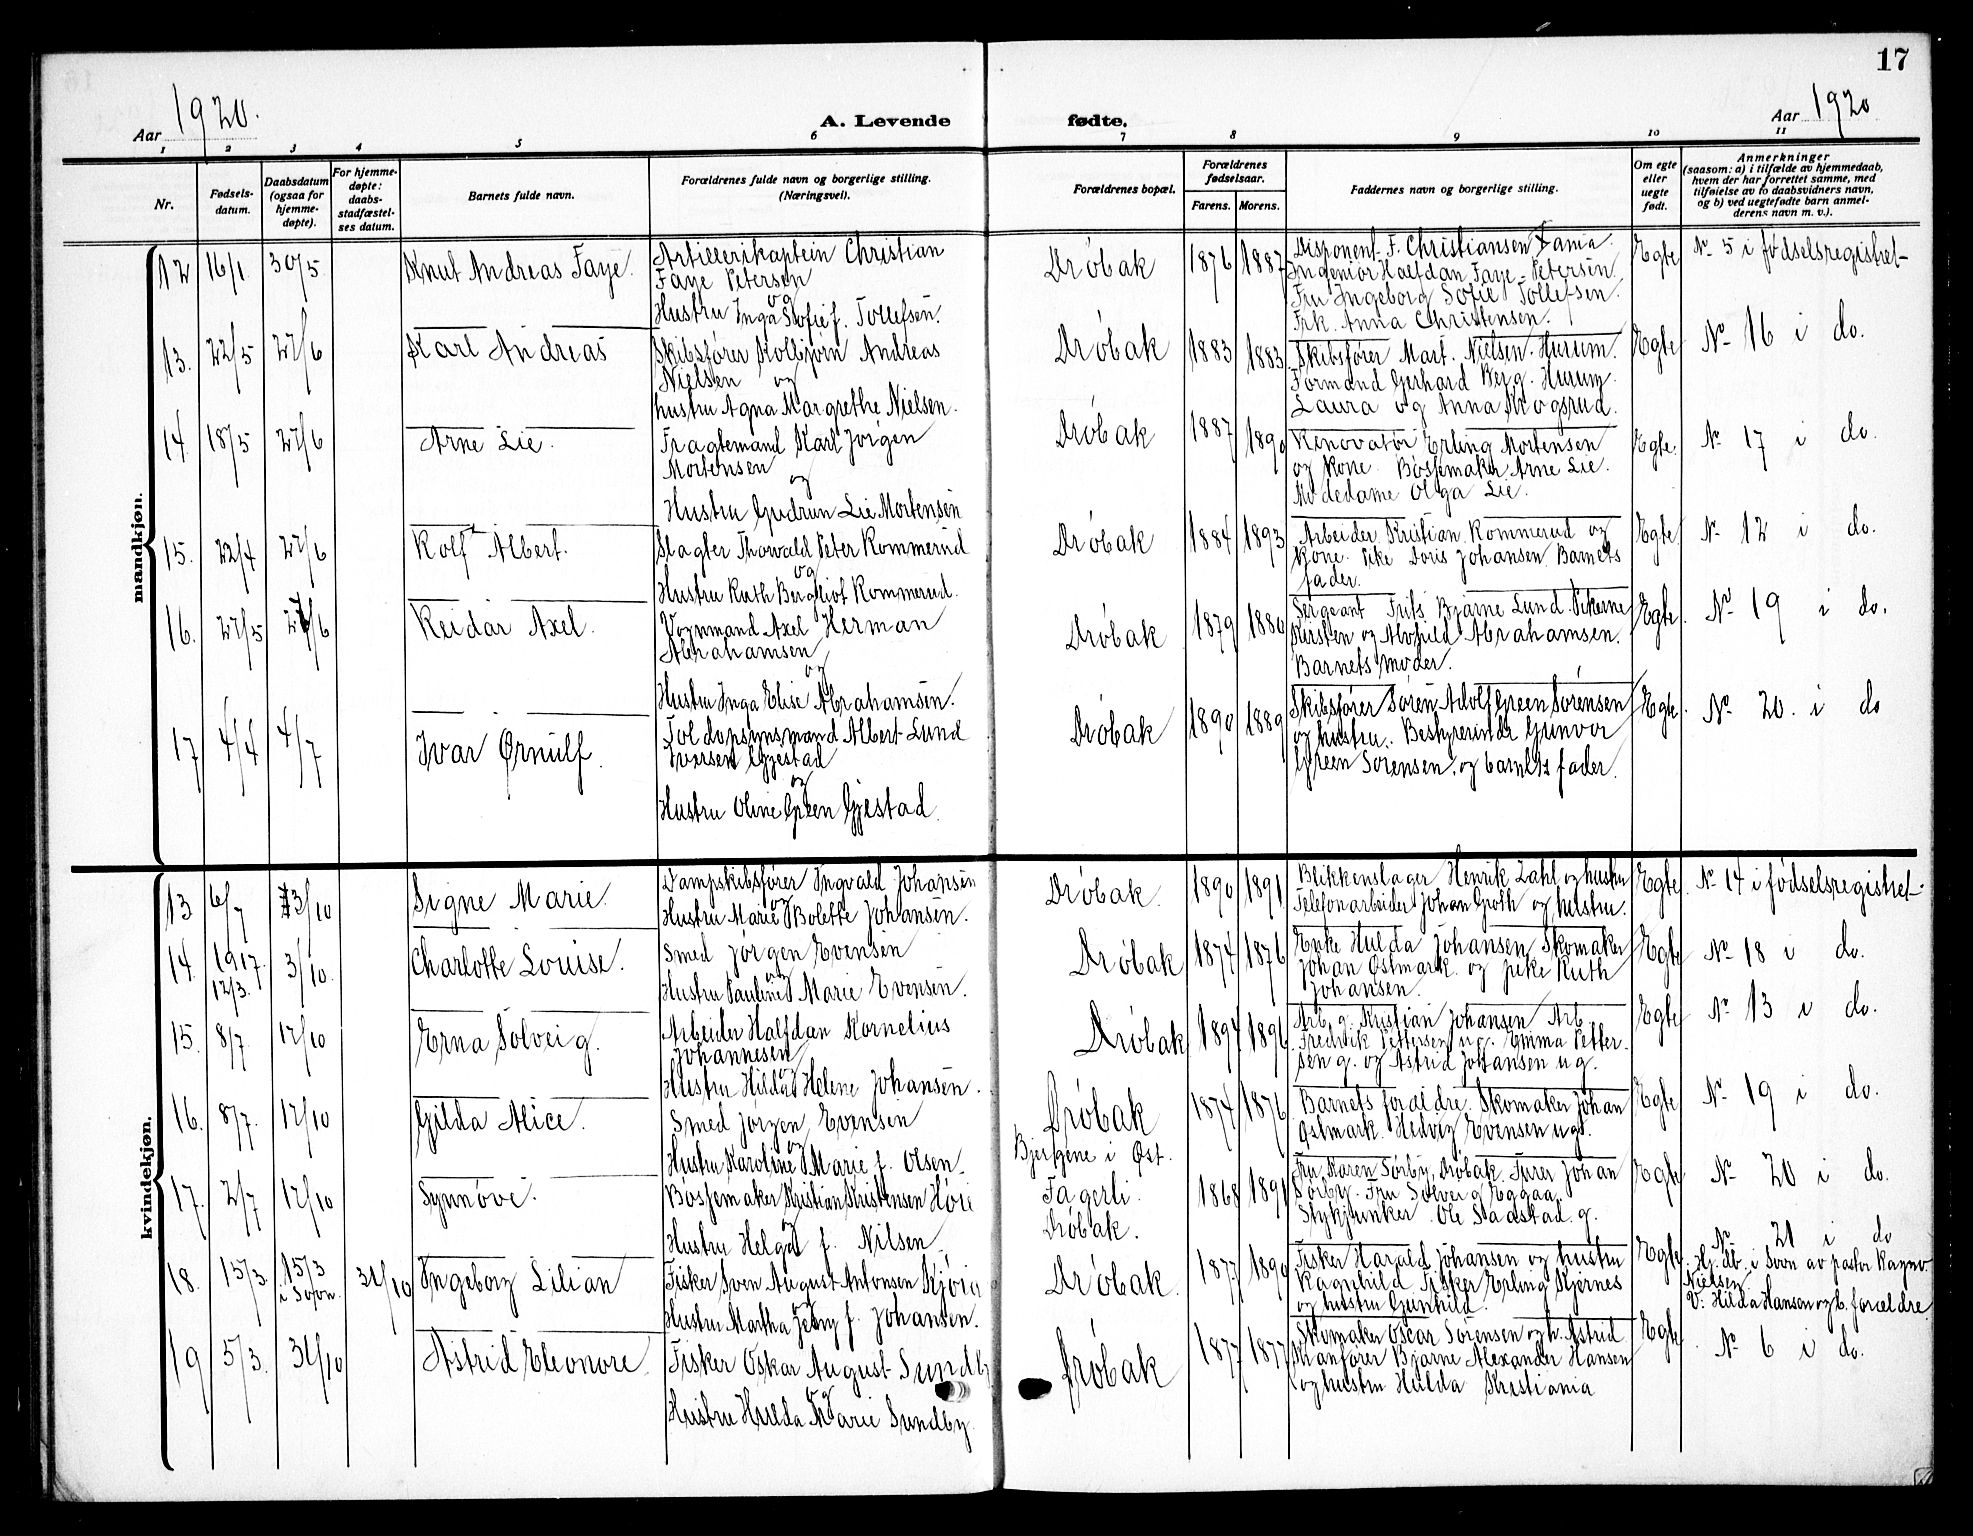 17
Aar 1920.
A. Levende fødte.
Aar 1920
1 2 3 4 5 6 7 8 9 10 11
Nr.
Fødsels-
datum.
Daabsdatum
(ogsaa for
hjemme-
døpte).
For hjemme-
døpte:
daabs-
stadfæstel-
ses datum.
Barnets fulde navn.
Forældrenes fulde navn og borgerlige stilling.
(Næringsvei).
Forældrenes bopæl.
Forældrenes
fødselsaar.
Farens. Morens.
Faddernes navn og borgerlige stilling.
Om egte
eller
uegte
født.
Anmerkninger
(saasom: a) i tilfælde av hjemmedaab,
hvem der har forrettet samme, med
tilføielse av to daabsvidners navn,
og b) ved uegtefødte barn anmel-
derens navn m. v.).
mandkjøn.
12 16/1 30/5 Knut Andreas Faye.
Artillerikaptein Christian
Faye Petersen
og
Hustru Inga Sofie f. Tollefsen.
Drøbak 1876 1887
Disponent F. Christiansen
Ingeniør Halfdan Faye-Petersen.
Fru Ingeborg Sofie Tollefsen.
Frk. Anna Christensen.
Egte No 5 i fødselsregistret
13. 22/5 27/6 Karl Andreas
Skibsfører Kolbjørn Andreas
Nielsen og
hustru Agna Margrethe Nielsen.
Drøbak 1883 1883
Skibsfører Mart. Nielsen. Hurum.
Formand Gerhard Berg. Hurum.
Laura og Anna Krogsrud.
Egte No 16 i do.
14. 18/5 27/6 Arne Lie.
Fragtemand Karl Jörgen
Mortensen
og
Hustru Gudrun Lie Mortensen
Drøbak 1887 1890
Renovatør Erling Mortensen
og kone. Bøssemaker Arne Lie.
Modedame Olga Lie.
Egte. No 17 i do.
15. 22/4 27/6 Rolf Albert.
Slagter Thorvald Peter Kommerud
og
Hustru Ruth Bergliot Kommerud.
Drøbak 1884 1893
Arbeider Kristian Kommerud og
kone. Pike Doris Johansen. Barnets
fader.
Egte. No 12 i do.
16. 27/5 27/6 Reidar Axel.
Vognmand Axel Herman
Abrahamsen
og
Hustru Inga Elise Abrahamsen.
Drøbak 1879 1880
Sergeant Frits Bjarne Lund. Pikerne
Kirsten og Alvhild Abrahamsen.
Barnets moder.
Egte. No 19 i do.
17 4/4 4/7 Ivar Ørnulf.
Toldopsynsmand Albert Lund
Iversen Gjestad
og
Hustru Oline Green Gjestad.
Drøbak 1890 1889
Skibsfører Søren Adolf Green Sørensen
og hustru. Bestyrerinde Gunvor
Green Sørensen, og barnets fader.
Egte. No 20. i do
kvindekjøn.
13 6/7 3/10 Signe Marie.
Dampskibsfører Ingvald Johansen
og
Hustru Marie Bolette Johansen.
Drøbak. 1890 1891
Blikkenslager Henrik Zahl og hustru
Telefonarbeider Johan Groth og hustru.
Egte. No 14 i fødselsregistret.
14. 1917. 12/3. 3/10. Charlotte Louise.
Smed Jørgen Evensen
og
Hustru Pauline Marie Evensen.
Drøbak 1874 1876
Enke Hulda Johansen, Skomaker
Johan Østmark og pike Ruth
Johansen.
Egte No 18 i do.
15. 8/7 17/10 Erna Solveig.
Arbeider Halfdan Kornelius
Johannesen
og
Hustru Hilda Helene Johansen.
Drøbak 1894 1896
Arb. g. Kristian Johansen Arb.
Fredrik Pettersen ug. Emma Petter-
sen g. og Astrid Johansen ug.
Egte No 13 i do.
16. 8/7. 17/10 Gilda Alice.
Smed Jørgen Evensen
og
Hustru Karoline Marie f. Olsen.
Drøbak 1874 1876
Barnets forældre. Skomaker Johan
Østmark. Hedvig Evensen ug.
Egte No 19 i do.
17. 2/7 17/10 Synnøve.
Bøssemaker Kristian Kristensen Høre
og
Hustru Helga f. Nilsen
Bjergene i Øst.
Fagerli.
Drøbak. 1868 1891
Fru Karen Sørby, Drøbak. Furer Johan
Sørby. Fru Solveig Eggaa.
Stykjunker Ole Saastad. g.
Egte No 20 i do.
18. 15/3 15/3 i Sovn. 31/10 Ingeborg Lilian
Fisker Sven August Antonsen
og
Hustru Martha Jenny f. Johansen.
Drøbak. 1877 1890
Fisker Harald Johansen og hustru
Ragnhild. Fisker Erling Skjernes
og hustru Gunhild.
Egte. No 21 i do
Hj. db. i Sovn av pastor Ragnv.
Nielsen.
V: Hilda Hansen og b. forældre
19 5/3. 31/10 Astrid Eleonore.
Fisker Oskar August Sundby
og
Hustru Hulda Marie Sundby.
Drøbak 1877 1877
Skomaker Oscar Sørensen og h. Astrid
Kranfører Bjarne Alexander Hansen
og hustru Hulda Kristiania
Egte. No 6 i do.